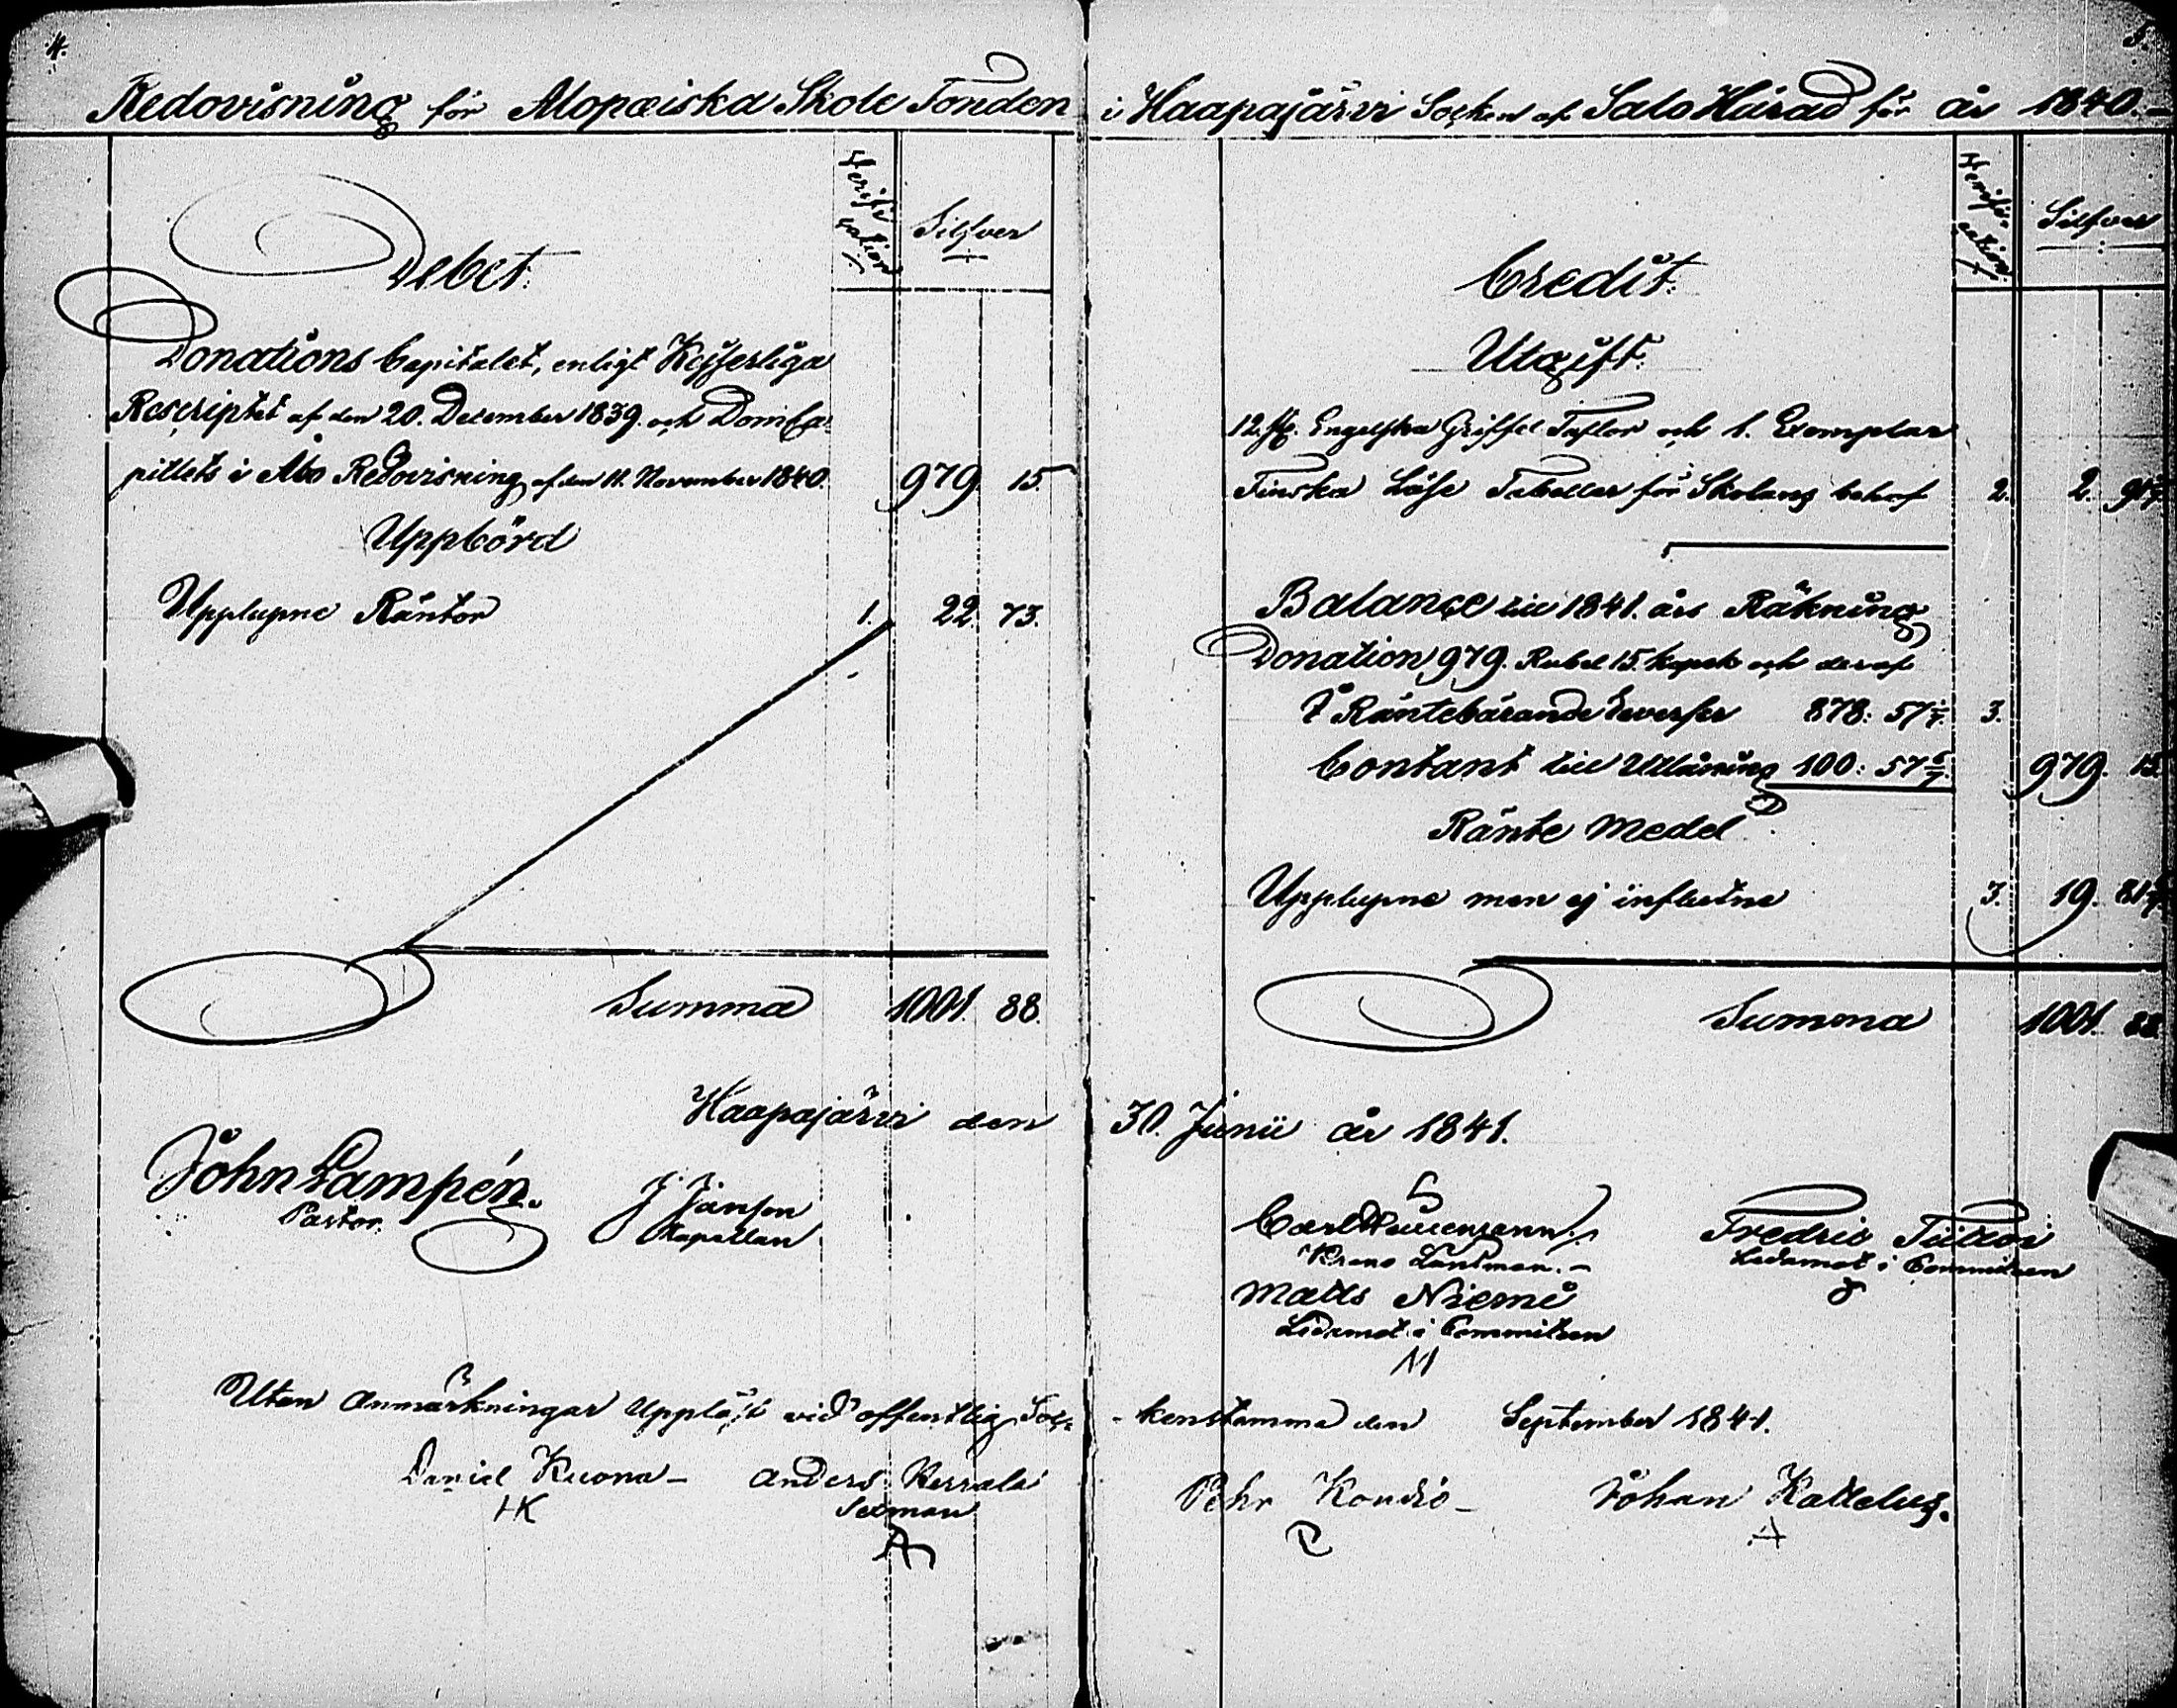 4.
5.
Redovisning för Alopæiska Skole Fonden i Haapajärvi Socken af Salo Härad för år 1840.
Debet.
Verifi-
cation
Silfver
Donations Capitalet, enligt Kejserliga
Rescriptet af den 20. December 1839. och DomCa-
pitlets i Åbo Redovisning af den 11. November 1840. 979 15.
Uppbörd
Upplupne Räntor 1. 22. 73.
Summa 1001. 88.
Credit.
Verifi-
cation
Silfver
Utgift.
12. st. Engelska Griffel Taflor och 1. Exemplar
Finska Läse Tabeller för Skolans behof 2. 2.
Balance till 1841. års Räkning
Donation 979. Rubel 15. kopek och deraf
I Räntebärande Reverser 878: 57 1/7. 3.
Contant till Utlåning 100: 57 6/7. 979. 15.
Ränte Medel
Upplupne men ej influtne 3. 19.
Summa 1001. 88.
Haapajärvi den 30. Junii år 1841.
John Lampén.
Pastor.
J. Janson
Kapellan
Carl
Krono Länsman.
Fredric
Ledamot i Committeen
Matts Niemi
Ledamot i Committeen
M
Utan Anmärkningar Uppläst vid offentlig Soc-
kenstämma den September 1841.
Daniel Kuona
HK
Anders
Sexman
A
Pehr
P
Johan Kattelus.